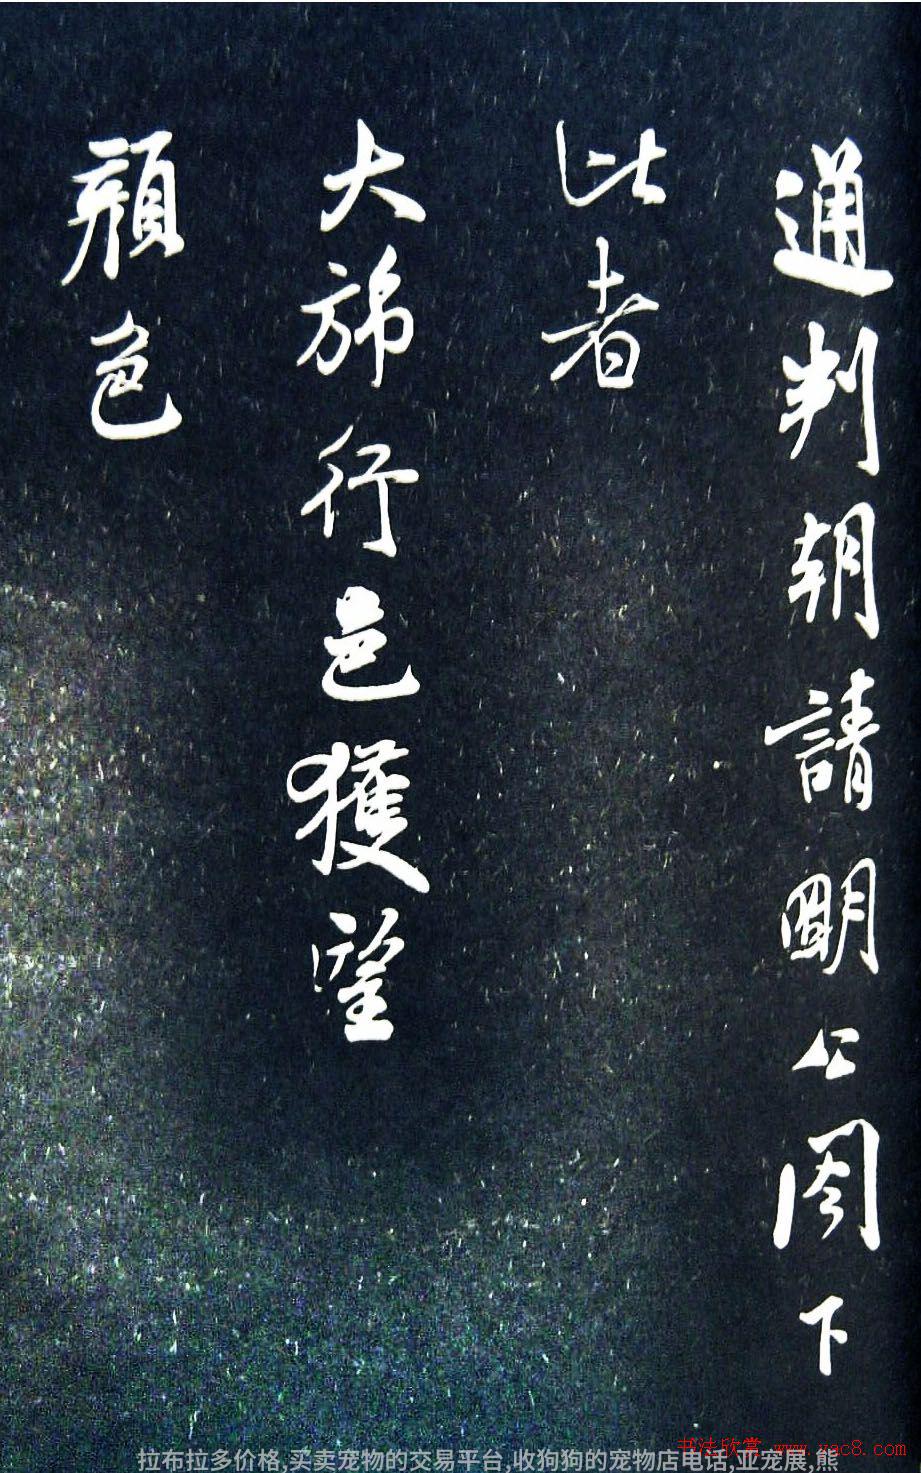 通判朝請明公閣下
此者
大旆行邑獲望
顏色
书法欣赏 www.yac8.com
拉布拉多价格,买卖宠物的交易平台,收狗狗的宠物店电话,亚宠展,熊